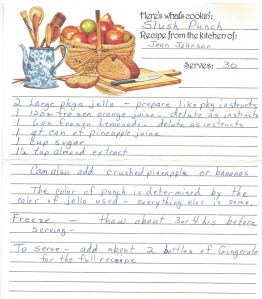 Here's what's cookin':
Slush Punch
Recipe from the kitchen of:
Jean Johnson
Serves: 30
2 Large pkgs jello - prepare like pkg instructs
1 12oz frozen orange juice, delute as instructs
1 6oz frozen Lemonade, delute as instructs
1 qt can of pineapple juice
1 cup sugar
1½ tsp almond extract
Can also add crushed pineapple or bananas
The color of punch is determined by the
color of jello used - everything else is same.
Freeze - thaw about 3 or 4 hrs before
serving -
To serve - add about 2 bottles of Gingerale
for the full receipe